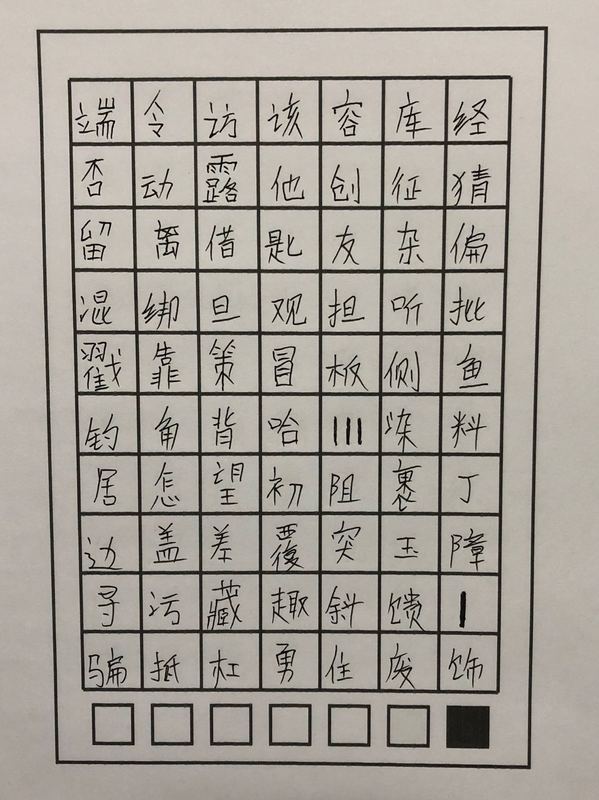 端令访该容库经
杏动露他创征猜
留离借匙友杂偏
混绑旦观担听批
戳靠策冒板侧鱼
钓角背哈||||染料
居怎望初阻裹丁
边盖差覆突玉障
寻污藏趣斜馈|
骗抵杠勇住废饰